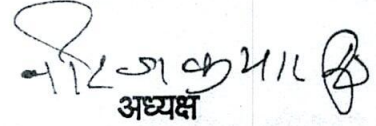 नीरज कुमार
अध्यक्ष